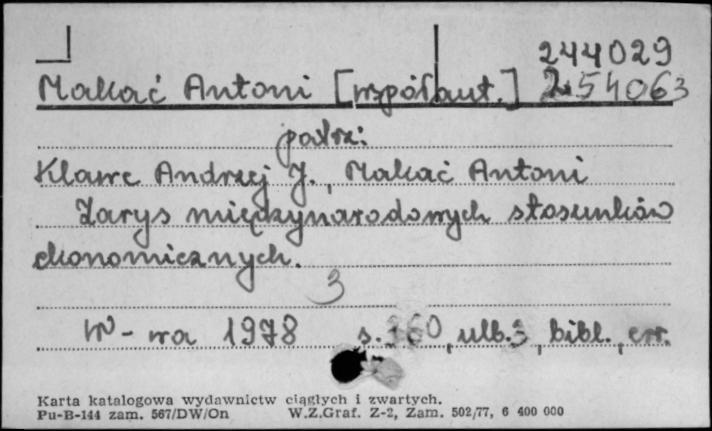 244029
Makać Antoni [współaut.] 254063
patrz:
Klawe Andrzej J., Makać Antoni
Zarys międzynarodowych stosunków
ekonomicznych.
3
W-wa 1978 s. 360, ulb. 3, bibl., err.
Karta katalogowa wydawnictw ciągłych i zwartych.
Pu-B-144 zam. 567/DW/On W.Z.Graf. Z-2, Zam. 502/77, 6 400 000